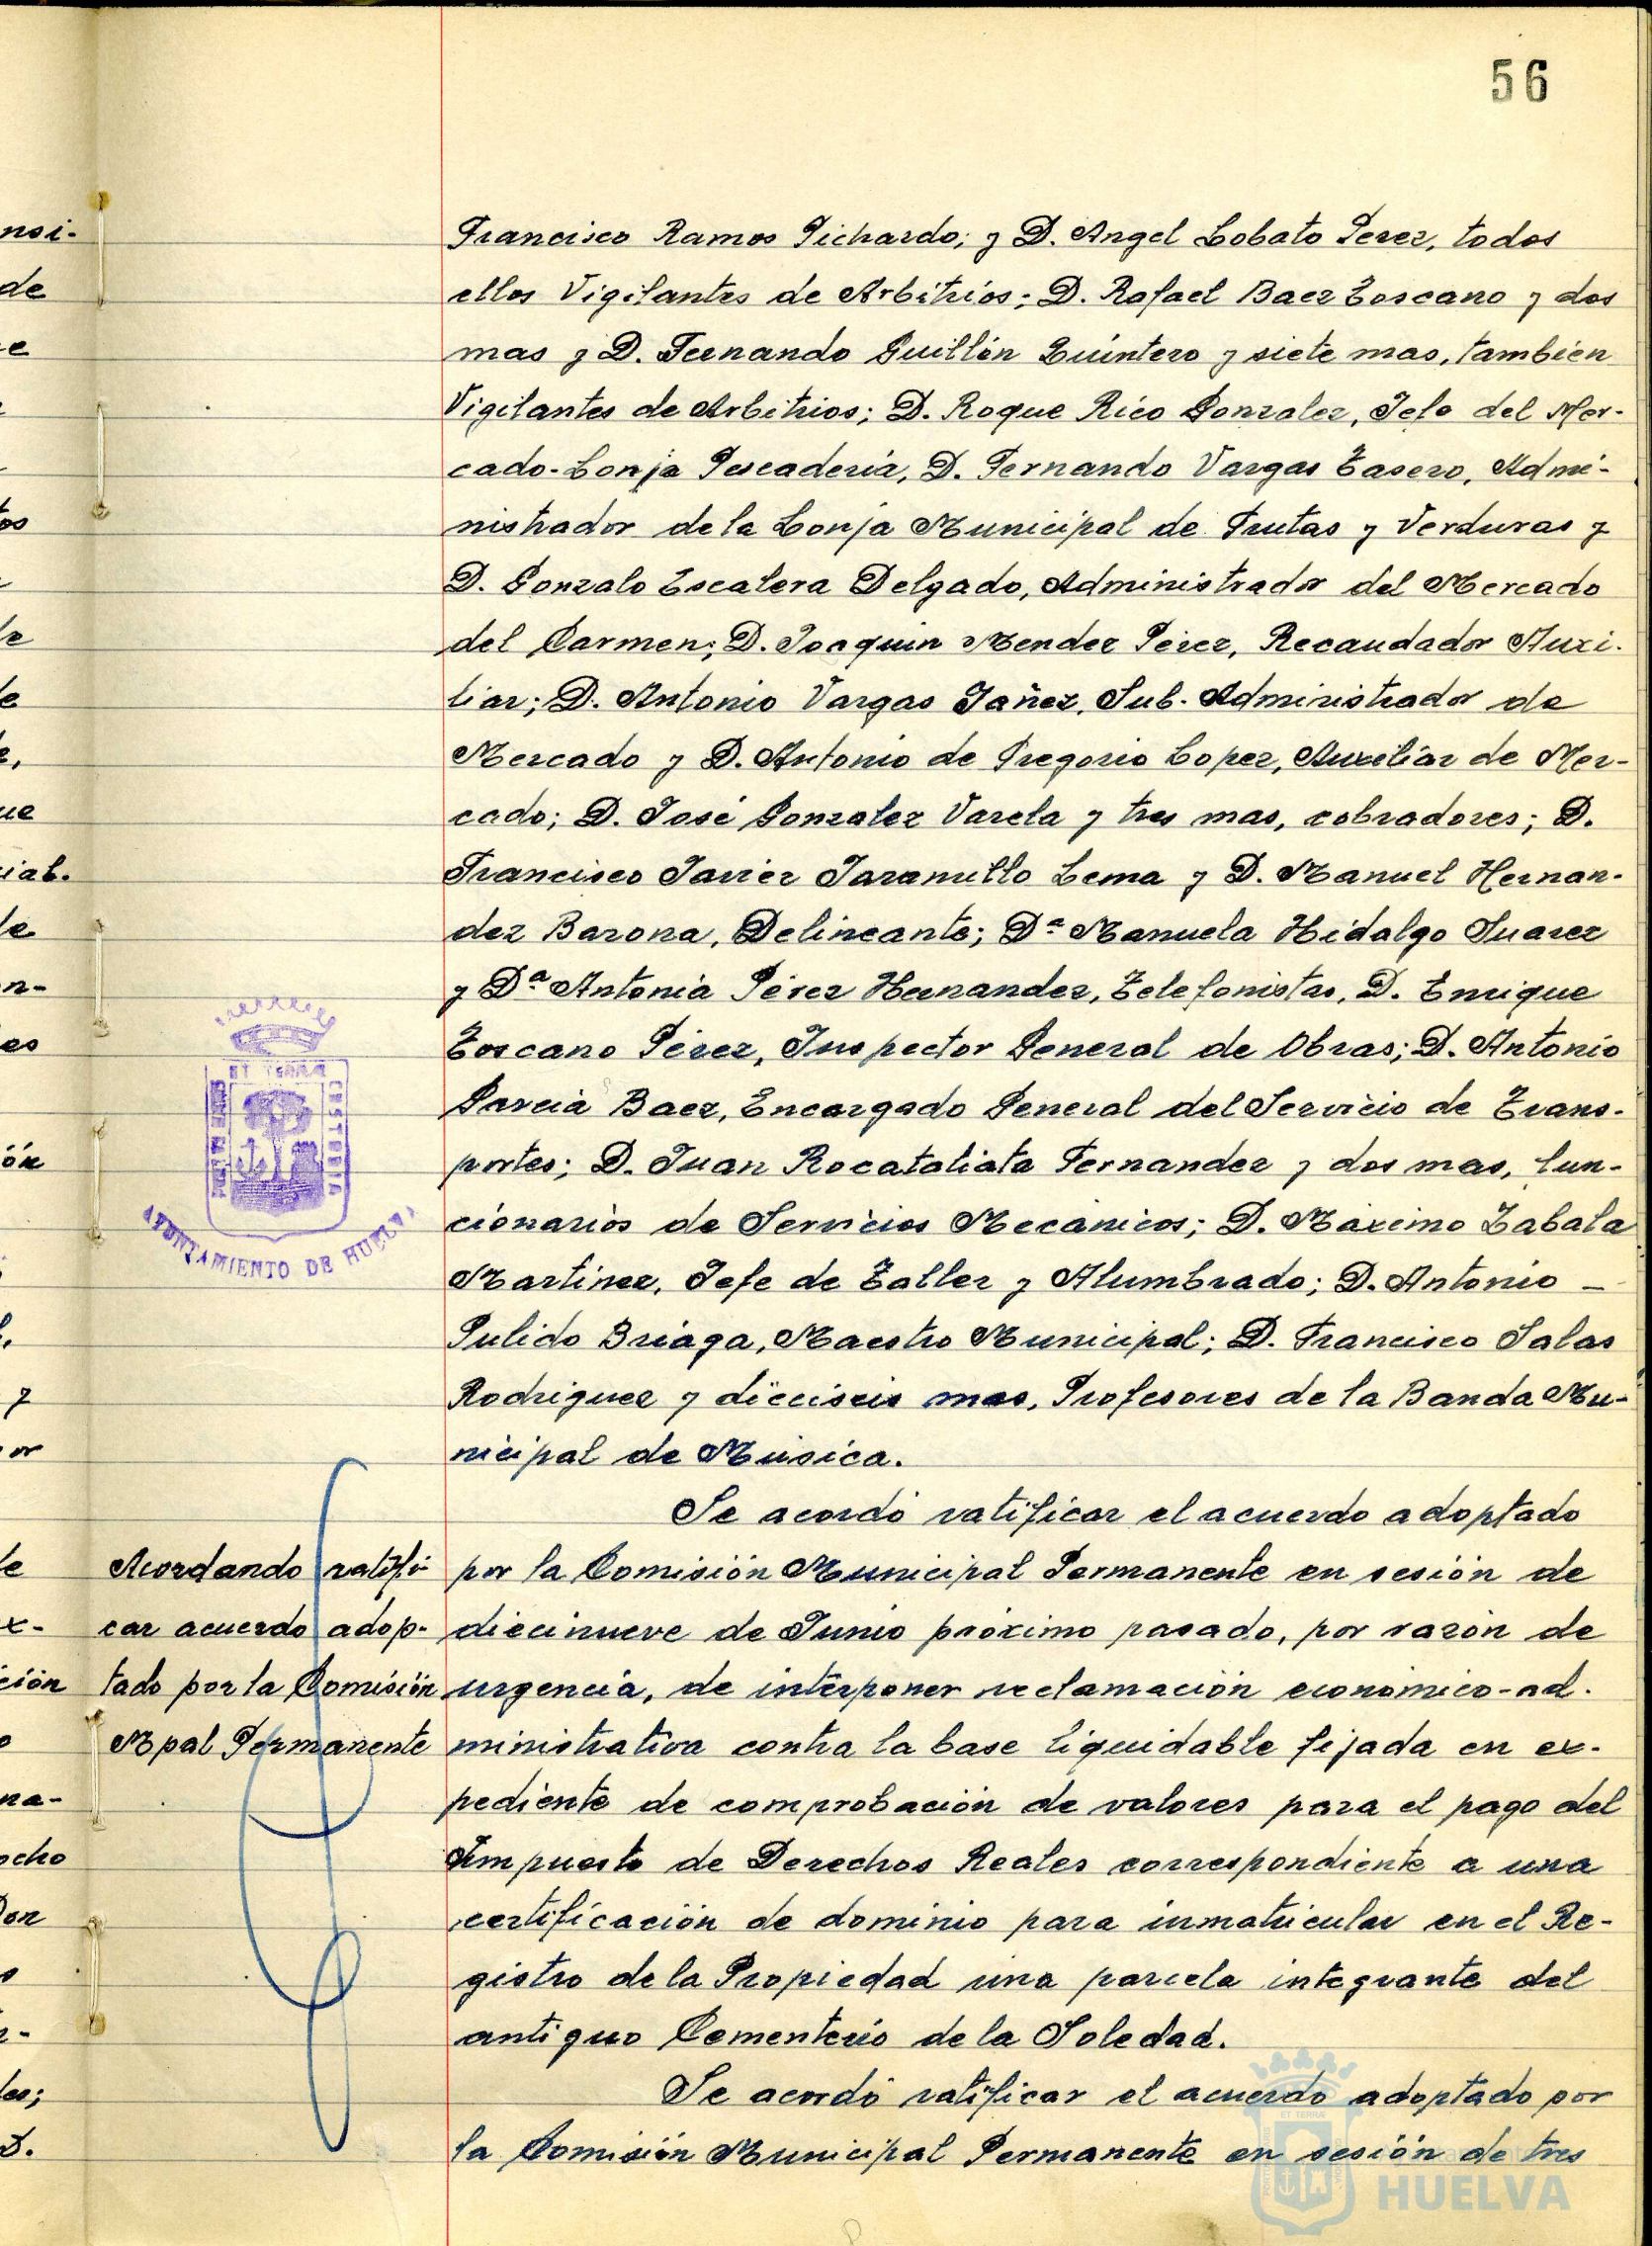 56
nsi-
de
e
tos
le
le
e,
ue
ial.
le
n-
es
ón
l,
y
or
le
x-
ción
o
na-
ocho
Don
o
r-
les;
D.
Francisco Ramos Pichardo; y D. Angel Lobato Perez, todos
ellos Vigilantes de Arbitrios; D. Rafael Baez Toscano y dos
mas y D. Fernando Guillén Quintero y siete mas, tambien
Vigilantes de Arbitrios; D. Roque Rico Gonzalez, Jefe del Mer-
cado-Lonja Pescaderia, D. Fernando Vargas Tasero, Admi-
nistrador de la Lonja Municipal de Frutas y Verduras y
D. Gonzalo Escalera Delgado, Administrador del Mercado
del Carmen; D. Joaquin Mendez Pérez, Recaudador Auxi-
liar; D. Antonio Vargas Yañez, Sub-Administrador de
Mercado y D. Antonio de Gregorio Lopez, Auxiliar de Mer-
cado; D. José Gonzalez Varela y tres mas, cobradores; D.
Francisco Javier Jaramillo Lema y D. Manuel Hernan-
dez Barona, Delineante; Dª Manuela Hidalgo Suarez
y Dª Antonia Pérez Hernandez, Telefonistas, D. Enrique
Toscano Pérez, Inspector General de Obras; D. Antonio
Garcia Baez, Encargado General del Servicio de Trans-
portes; D. Juan Rocataliata Fernandez y dos mas, fun-
cionarios de Servicios Mecánicos; D. Máximo Zabala
Martinez, Jefe de Taller y Alumbrado; D. Antonio -
Pulido Briaga, Maestro Municipal; D. Francisco Salas
Rodriguez y dieciseis mas, Profesores de la Banda Mu-
nicipal de Música.
ET TERRAE
CUSTODIA
AYUNTAMIENTO DE HUELVA
Se acordó ratificar el acuerdo adoptado
por la Comisión Municipal Permanente en sesión de
diecinueve de Junio próximo pasado, por razón de
urgencia, de interponer reclamación económico-ad-
ministrativa contra la base liquidable fijada en ex-
pediente de comprobación de valores para el pago del
Impuesto de Derechos Reales correspondiente a una
certificación de dominio para inmatricular en el Re-
gistro de la Propiedad una parcela integrante del
antiguo Cementerio de la Soledad.
Acordando ratifi
car acuerdo adop-
tado por la Comisión
Mpal Permanente
Se acordó ratificar el acuerdo adoptado por
la Comisión Municipal Permanente en sesión de tres
HUELVA